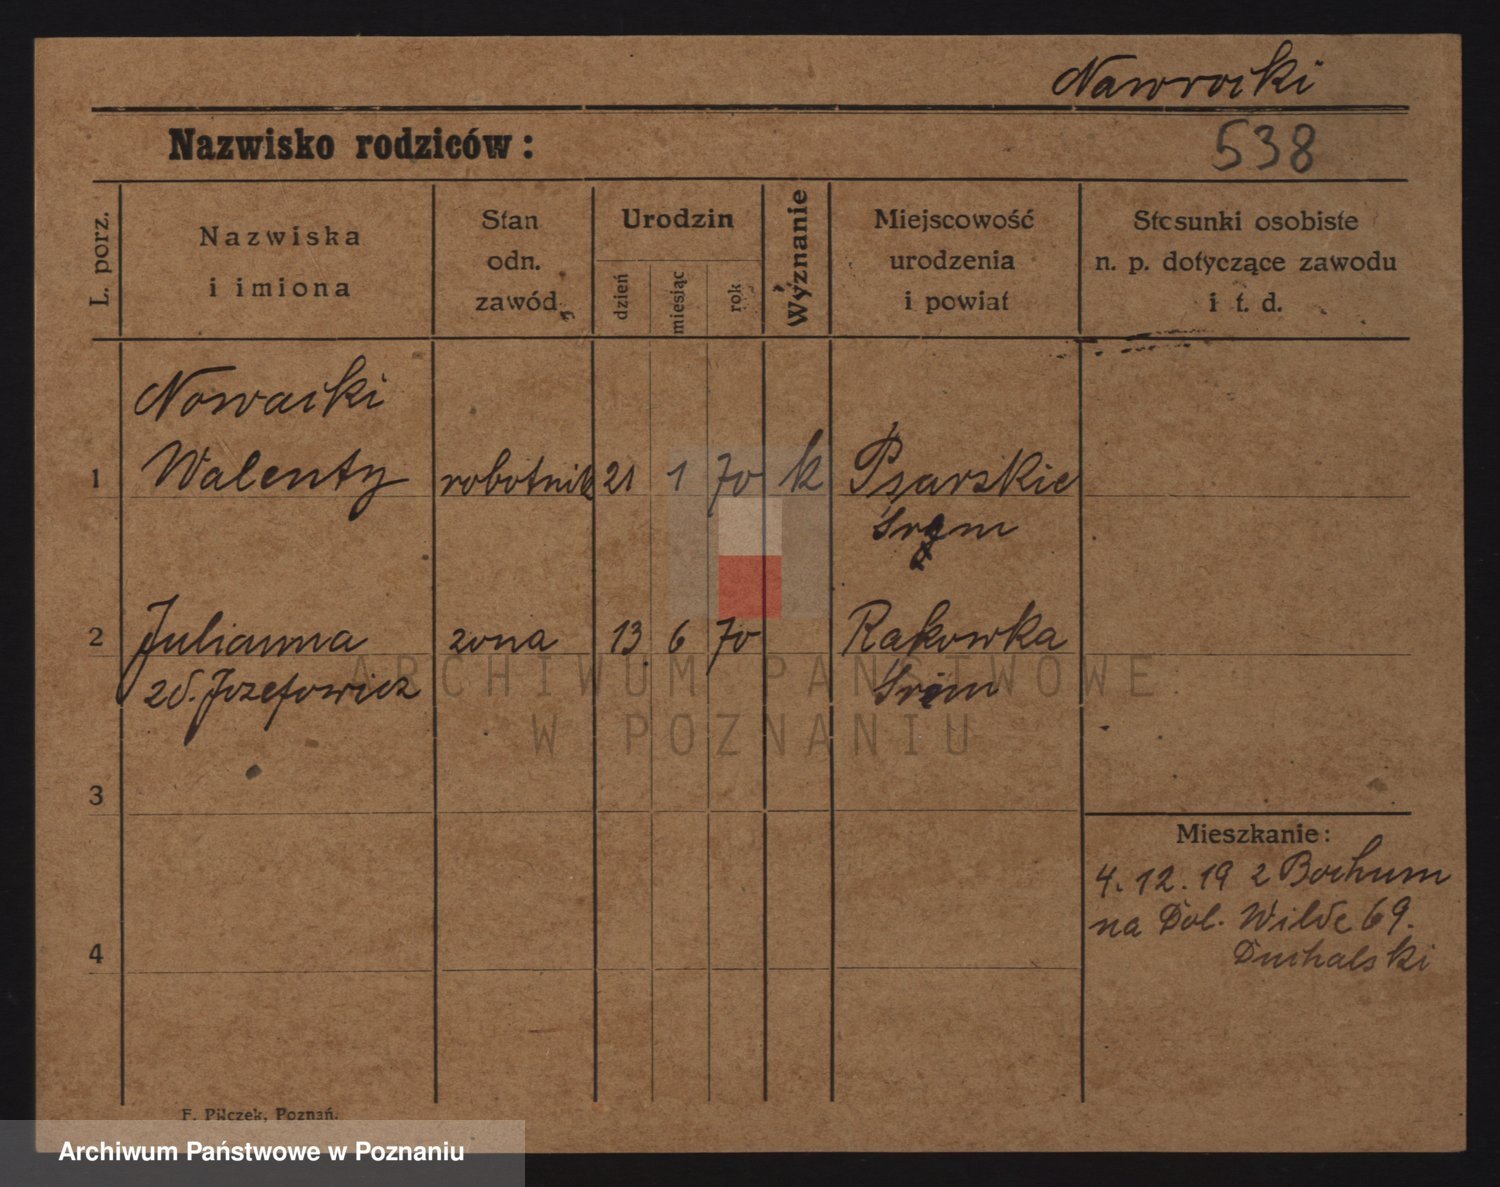 Nawrocki
Nazwisko rodziców:
538
L. porz.
Nazwiska
i imiona
Stan
odn.
zawód
Urodzin
dzień
miesiąc
rok
Wyznanie
Miejscowość
urodzenia
i powiat
Stosunki osobiste
n. p. dotyczące zawodu
i t. d.
Nowacki
1 Walenty robotnik 21 1 70 k Psarskie
Srem
2 Julianna zona 13 6 70 Rakowka
zd. Jozefowicz Srem
ARCHIWUM PAŃSTWOWE
W POZNANIU
3
Mieszkanie:
4.12.19 z Bochum
na Dol. Wilde 69.
4
Duchalski
F. Pilczek, Poznań.
Archiwum Państwowe w Poznaniu